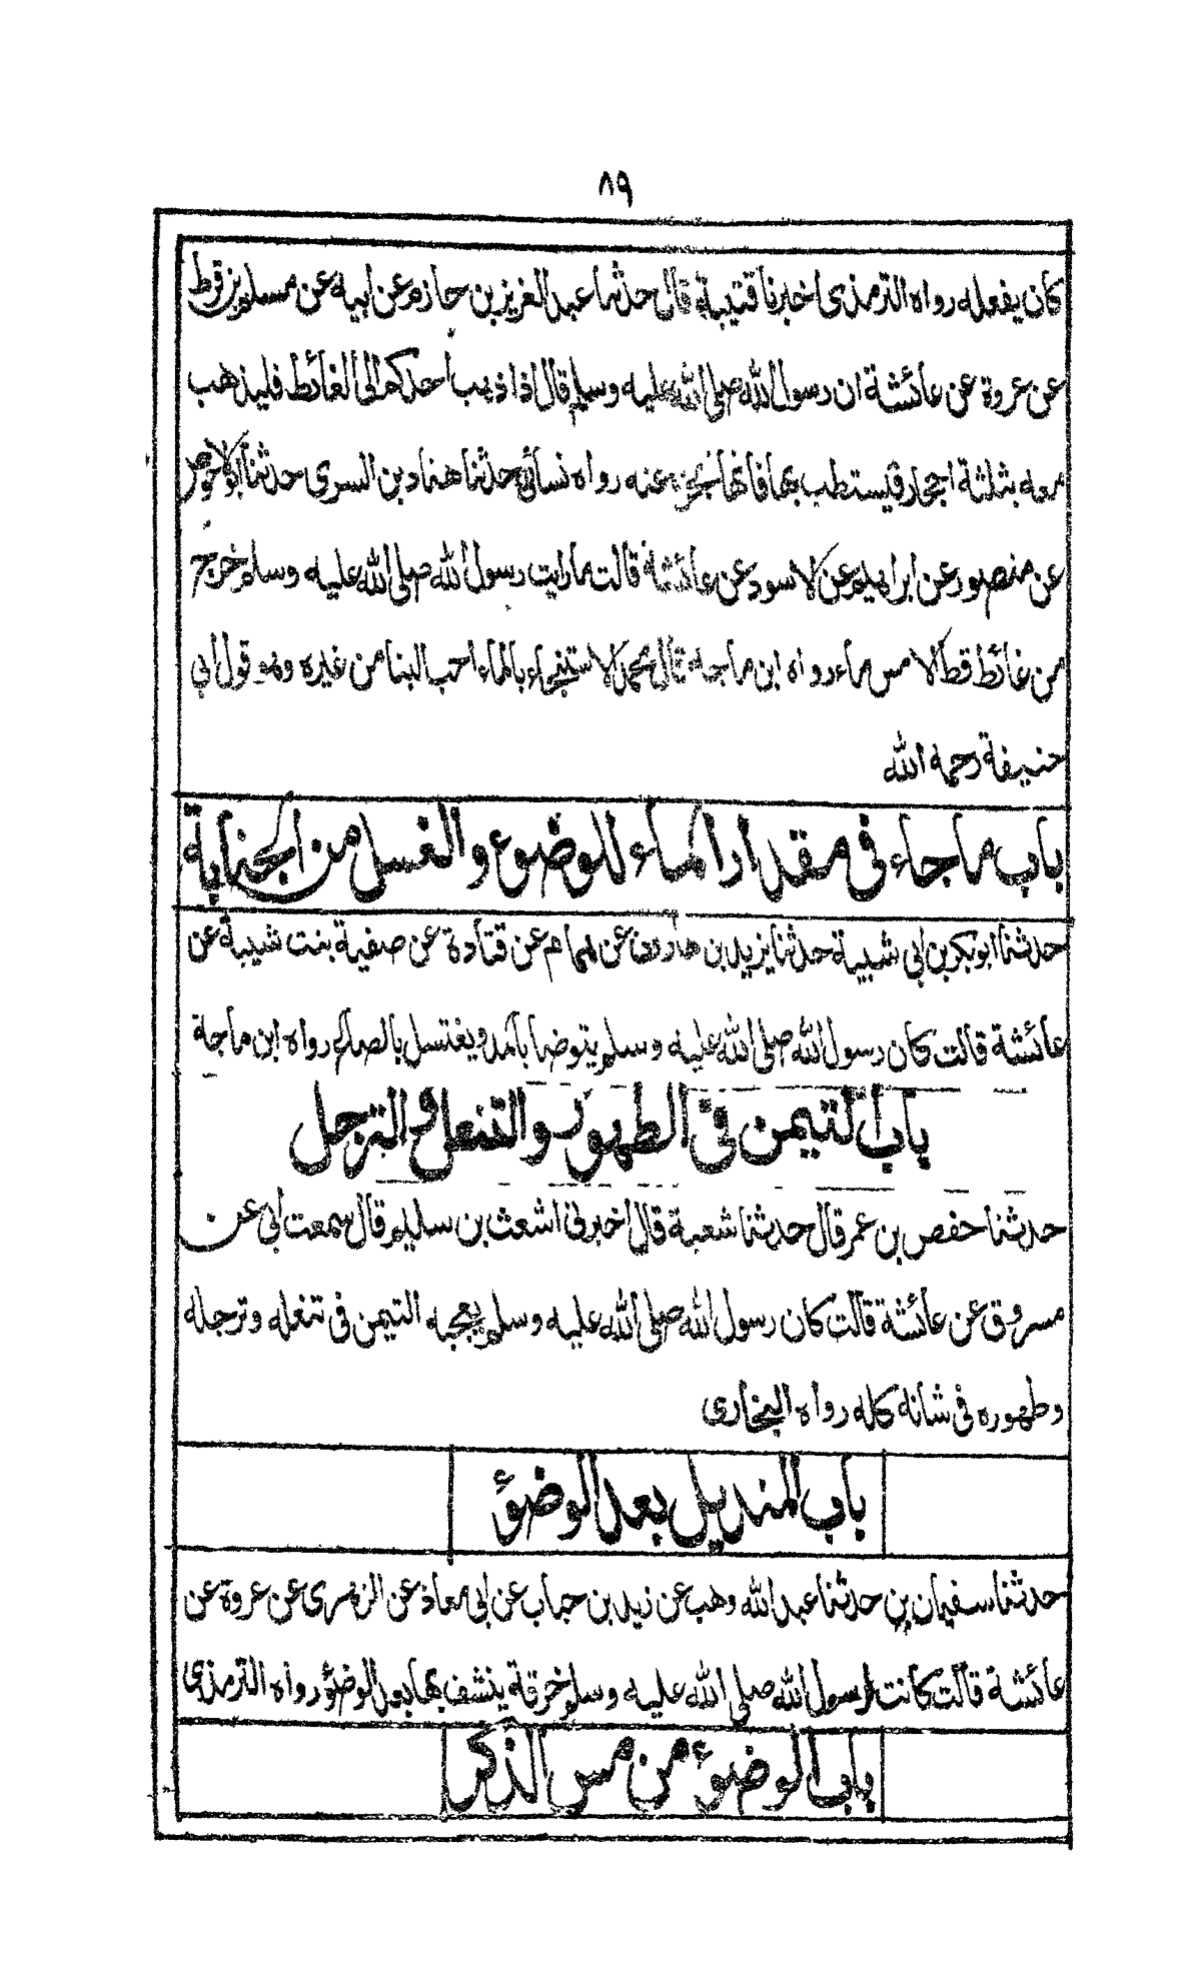 ٨٩
كان يفعله رواه الترمذى اخبرنا قتيبة قال حدثنا عبد العزيز بن حازم عن ابيه عن مسلم بن قرط
عن عروة عن عائشة ان رسول الله صلى الله عليه وسلم قال اذا ذهب احدكم الى الغائط فليذهب
معه بثلثة احجار فيستطب بها فانها تجزى عنه رواه نسائى حدثنا هناد بن السرى حدثنا ابو الاحوص
عن منصور عن ابراهيم عن الاسود عن عائشة قالت مارايت رسول الله صلى الله عليه وسلم خرج
من غائط قط الا مس ماء رواه ابن ماجة قال محمد الاستنجاء بالماء احب الينا من غيره وهو قول ابى
حنيفة رحمه الله
باب ماجاء فى مقدار الماء للوضوء والغسل من الجنابة
حدثنا ابو بكر بن ابى شيبة حدثنا يزيد بن هارون عن همام عن قتادة عن صفية بنت شيبة عن
عائشة قالت كان رسول الله صلى الله عليه وسلم يتوضا بالمد ويغتسل بالصاع رواه ابن ماجة
باب التيمن فى الطهور والتنعل والترجل
حدثنا حفص بن عمر قال حدثنا شعبة قال اخبرنى اشعث بن سليم قال سمعت ابى عن
مسروق عن عائشة قالت كان رسول الله صلى الله عليه وسلم يعجبه التيمن فى تنعله وترجله
وطهوره فى شانه كله رواه البخارى
باب المنديل بعد الوضوء
حدثنا سفيان بن حدثنا عبد الله وهب عن زيد بن حباب عن ابى معاذ عن الزهرى عن عروة عن
عائشة قالت كانت لرسول الله صلى الله عليه وسلم خرقة ينشف بها بعد الوضوء رواه الترمذى
باب الوضوء من مس الذكر